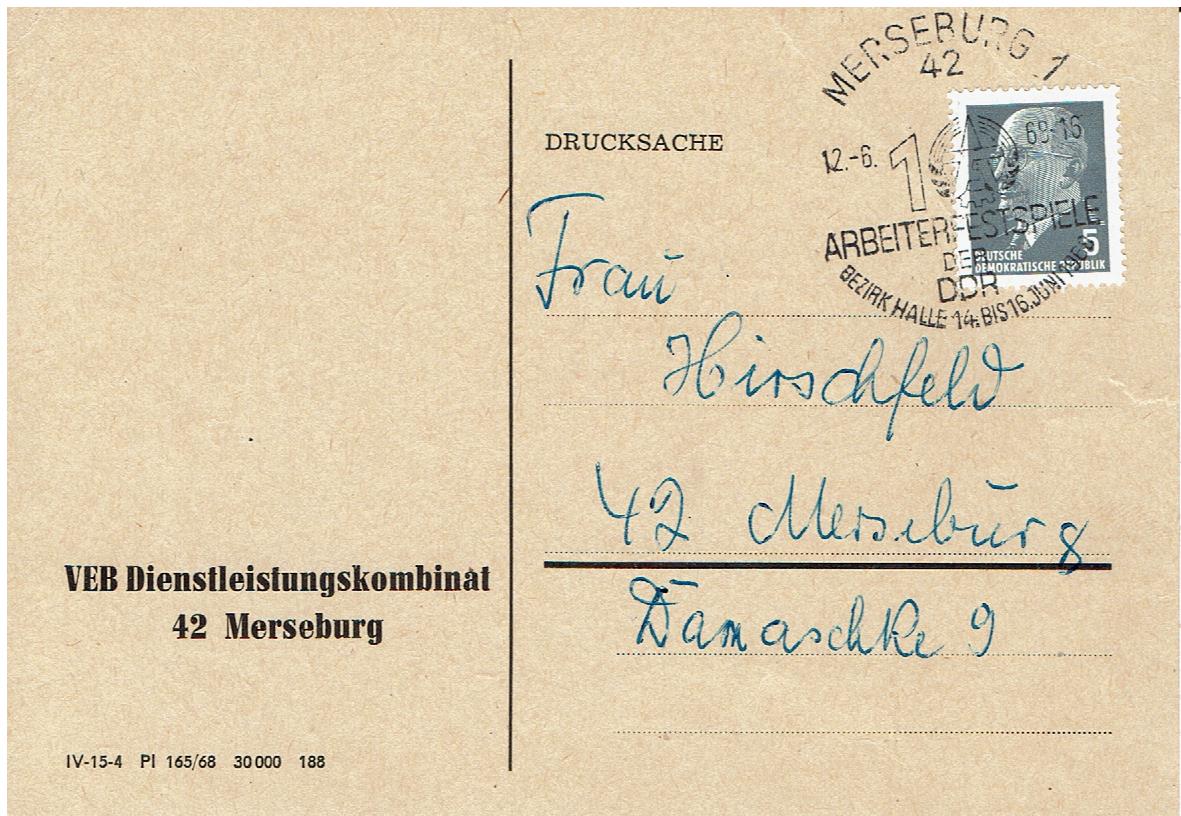 MERSEBURG 1
42
12.-6. 68-16
10
ARBEITERFESTSPIELE
DER
DDR
BEZIRK HALLE 14. BIS 16. JUNI 1968
5
DEUTSCHE
DEMOKRATISCHE REPUBLIK
DRUCKSACHE
Frau
Hirschfeld
42 Merseburg
Damaschke 9
VEB Dienstleistungskombinat
42 Merseburg
IV-15-4 PI 165/68 30 000 188